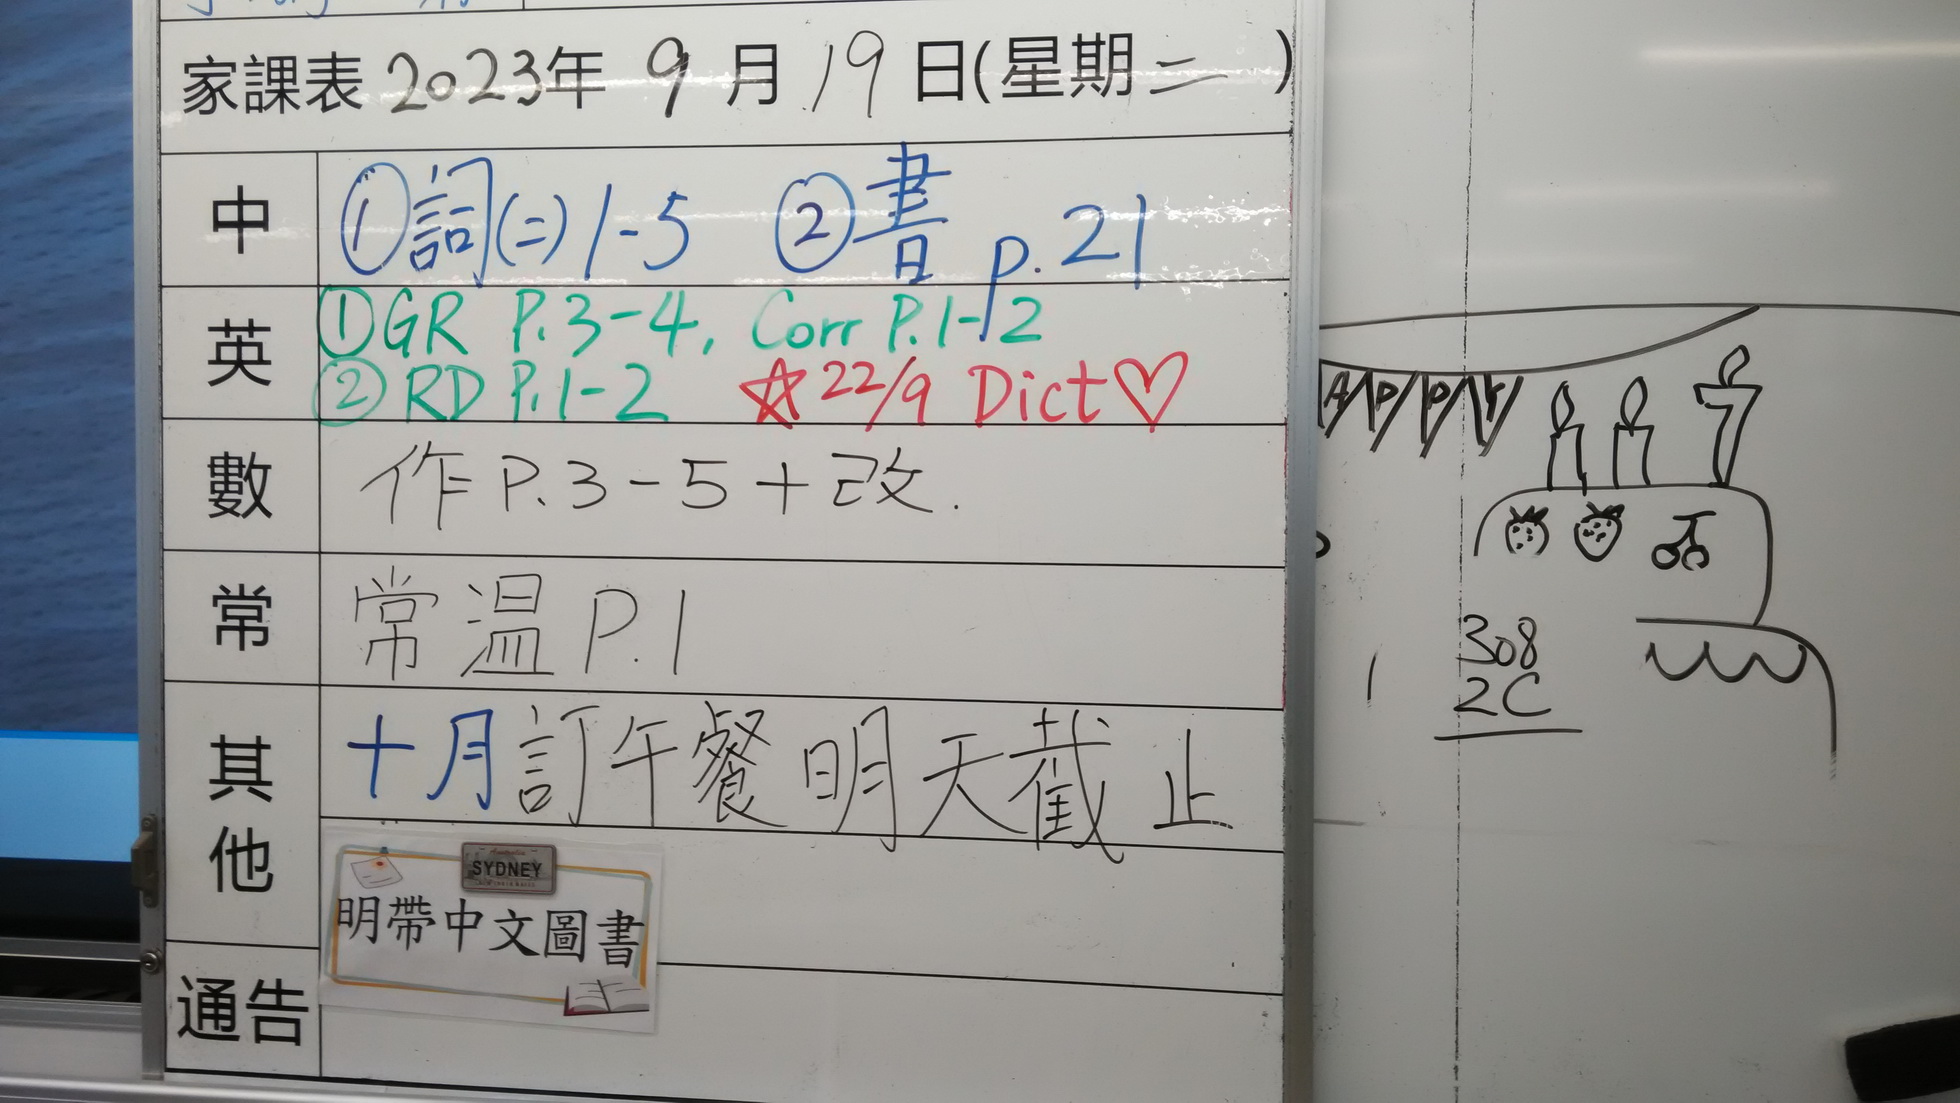 家課表 2023年 9月 19日(星期二 )
中 ①詞(二) 1-5 ②書 p.21
英 ①GR P.3-4, Corr P.1-2
②RD P.1-2 ☆22/9 Dict♡
數 作P.3-5+改.
常 常溫P.1
其他 十月訂午餐明天截止
SYDNEY
明帶中文圖書
通告
APPY
308
2C